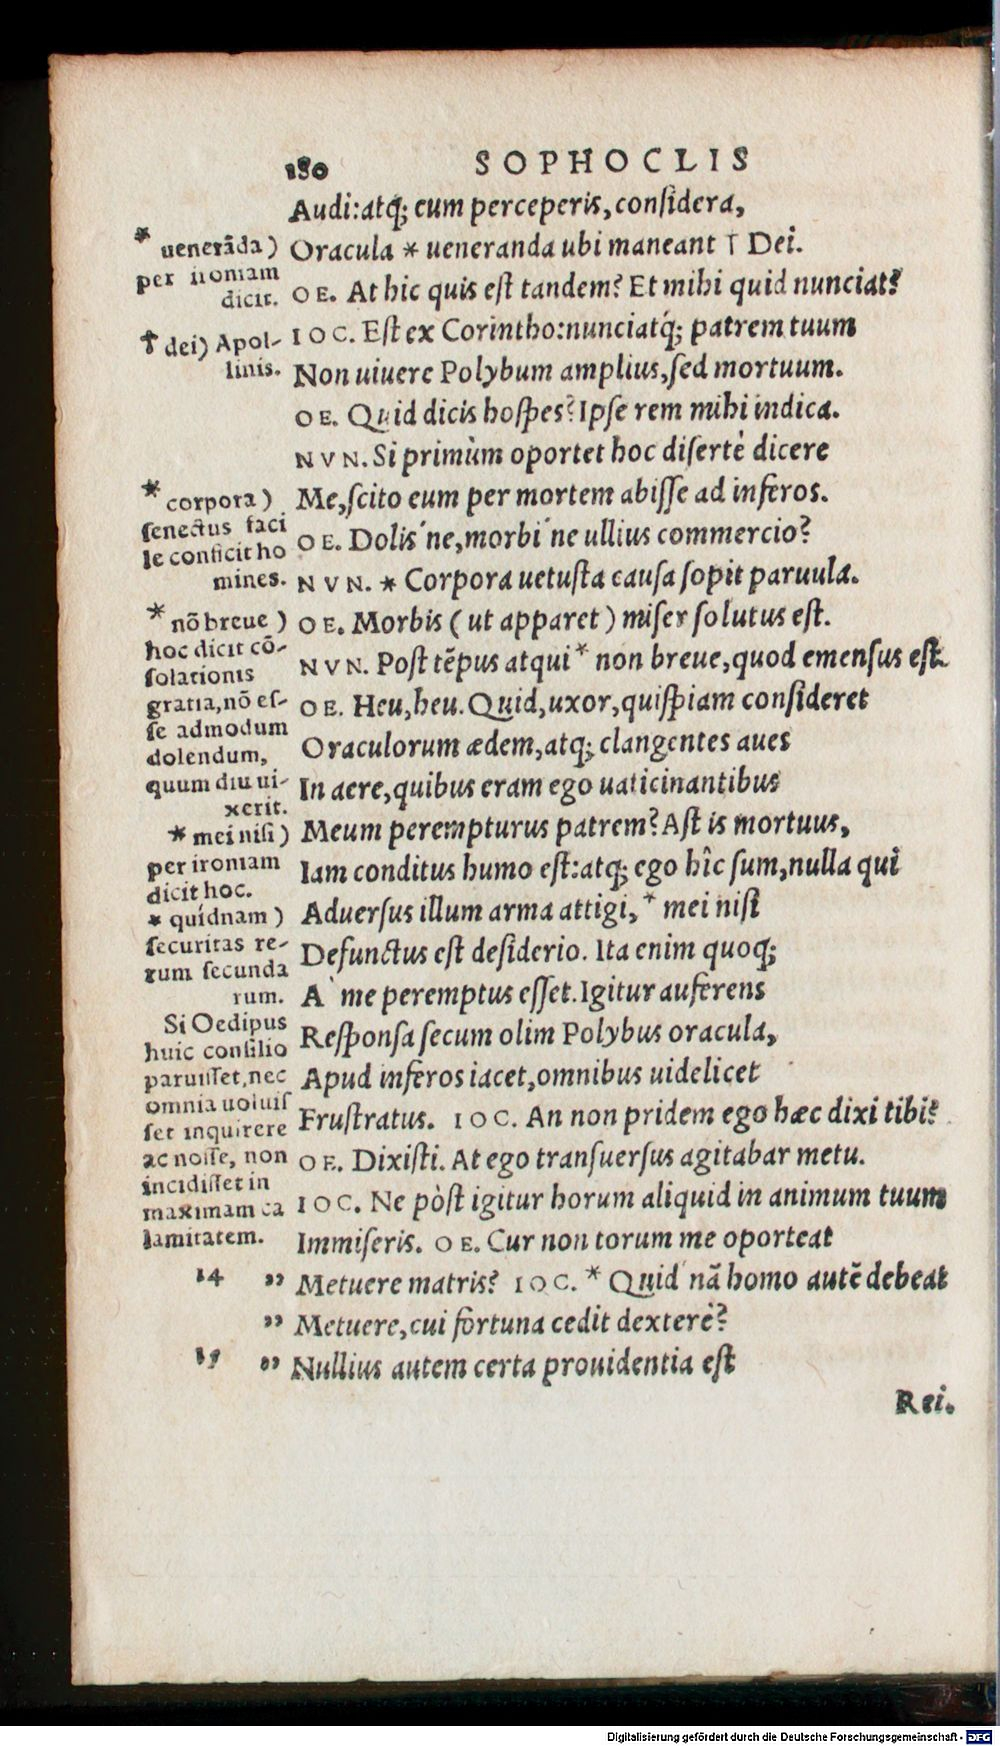 180 SOPHOCLIS
Audi:atq; cum perceperis,conſidera,
Oracula * ueneranda ubi maneant † Dei.
OE. At hic quis eſt tandem? Et mihi quid nunciat?
IOC. Eſt ex Corintho:nunciatq́; patrem tuum
Non uiuere Polybum amplius,ſed mortuum.
OE. Quid dicis hoſpes? Ipſe rem mihi indica.
NVN. Si primùm oportet hoc diſertè dicere
Me,ſcito eum per mortem abiſſe ad inferos.
OE. Dolis´ne,morbi´ne ullius commercio?
NVN. * Corpora uetuſta cauſa ſopit paruula.
OE. Morbis (ut apparet) miſer ſolutus eſt.
NVN. Poſt tēpus atqui * non breue,quod emenſus eſt.
OE. Heu,heu. Quid,uxor,quiſpiam conſideret
Oraculorum ædem,atq; clangentes aues
In aere,quibus eram ego uaticinantibus
Meum perempturus patrem? Aſt is mortuus,
Iam conditus humo eſt:atq; ego hîc ſum,nulla qui
Aduerſus illum arma attigi, * mei niſi
Defunctus eſt deſiderio. Ita enim quoq;
A` me peremptus eſſet. Igitur auferens
Reſponſa ſecum olim Polybus oracula,
Apud inferos iacet,omnibus uidelicet
Fruſtratus. IOC. An non pridem ego hæc dixi tibi?
OE. Dixiſti. At ego tranſuerſus agitabar metu.
IOC. Ne pòſt igitur horum aliquid in animum tuum
Immiſeris. OE. Cur non torum me oporteat
14 ,, Metuere matris? IOC. * Quid´nā homo autē debeat
,, Metuere,cui fortuna cedit dexterè?
15 ,, Nullius autem certa prouidentia eſt
Rei.
* uenerāda)
per ironiam
dicit.
† dei) Apol-
linis.
* corpora)
ſenectus faci
le conficit ho
mines.
* nō breue)
hoc dicit cō-
ſolationis
gratia,nō eſ-
ſe admodum
dolendum,
quum diu ui-
xerit.
* mei niſi)
per ironiam
dicit hoc.
* quídnam)
ſecuritas re-
rum ſecunda
rum.
Si Oedipus
huic conſilio
paruiſſet,nec
omnia uoluiſ
ſet inquirere
ac noſſe, non
incidiſſet in
maximam ca
lamitatem.
Digitalisierung gefördert durch die Deutsche Forschungsgemeinschaft - DFG